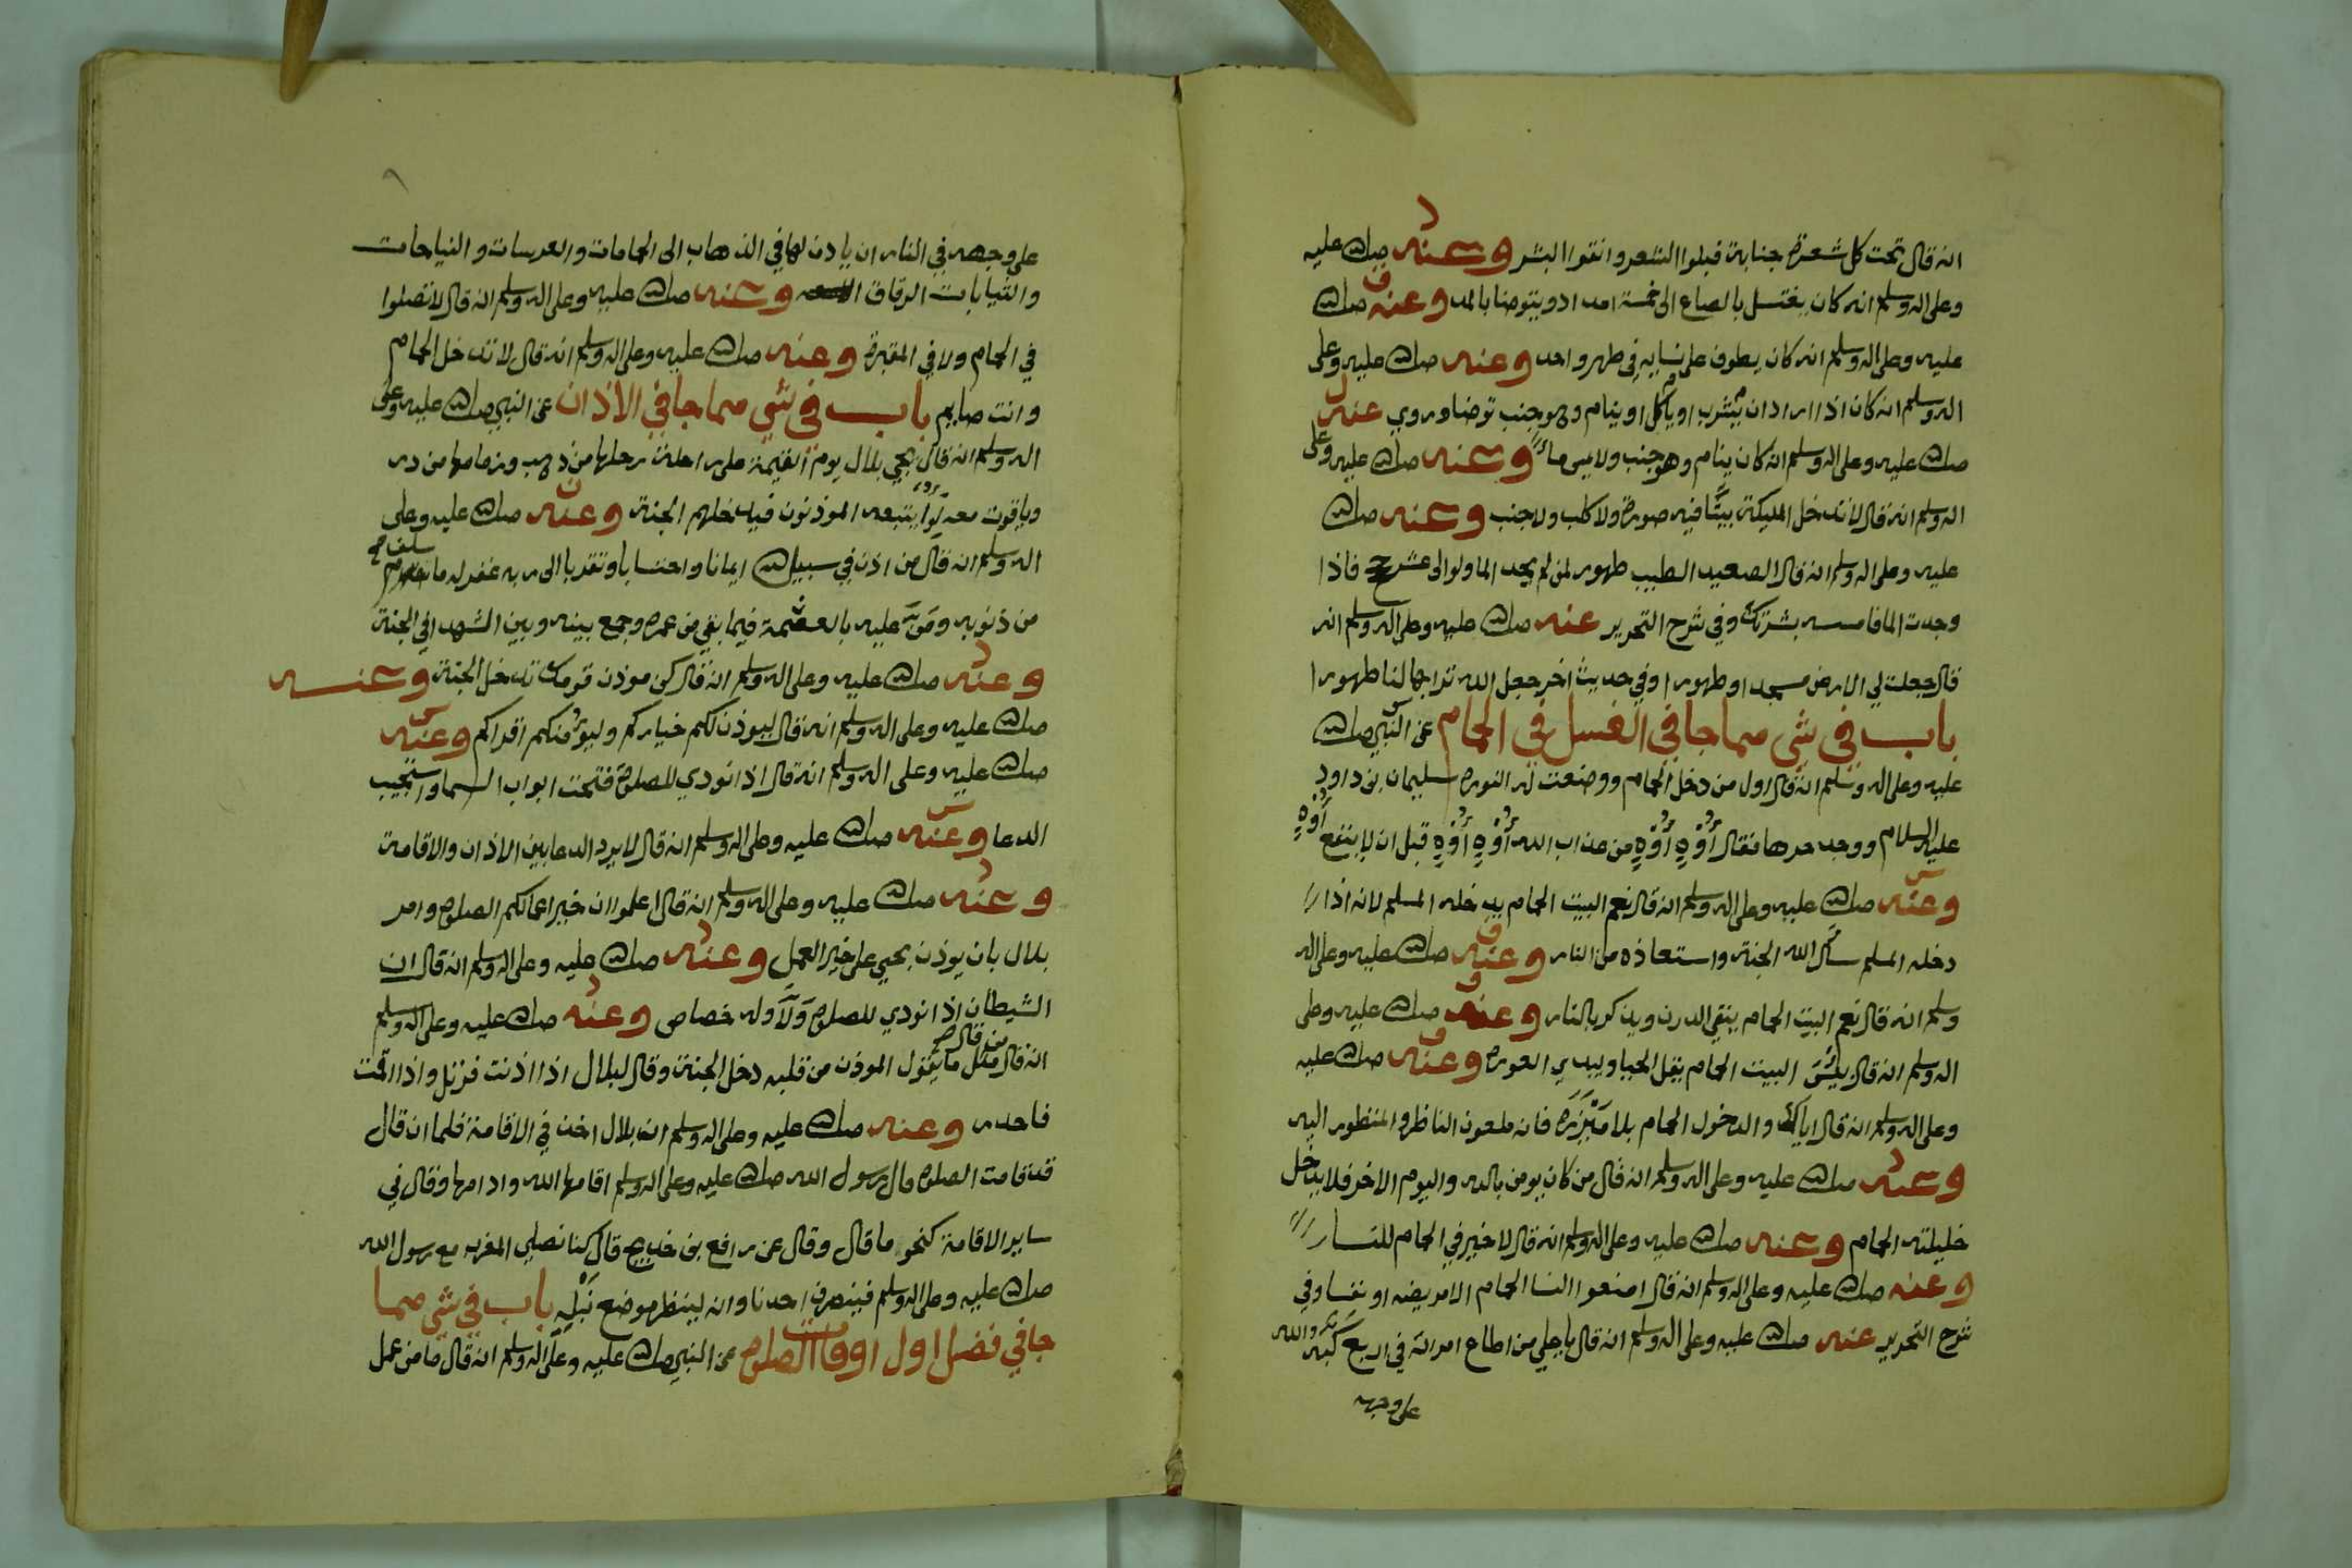 انه قال تحت كل شعرة جنابة فبلوا الشعر وانقوا البشر وعنه صلى الله عليه
وعلى اله وسلم انه كان يغتسل بالصاع الى خمسة امداد ويتوضا بالمد وعنه صلى الله
عليه وعلى اله وسلم انه كان يطوف على نسايه في طهر واحد وعنه صلى الله عليه وعلى
اله وسلم انه كان اذا اراد ان يشرب او ياكل او ينام وهو جنب توضا وروي عنه
صلى الله عليه وعلى اله وسلم انه كان ينام وهو جنب ولا يمس ماء وعنه صلى الله عليه وعلى
اله وسلم انه قال لا تدخل المليكة بيتا فيه صورة ولا كلب ولا جنب وعنه صلى الله
عليه وعلى اله وسلم انه قال الصعيد الطيب طهور لمن لم يجد الما ولو الى عشر حجج فاذا
وجدت الما فامسسه بشرتك وفي شرح التحرير عنه صلى الله عليه وعلى اله وسلم انه
قال جعلت لي الارض مسجدا وطهورا وفي حديث اخر جعل الله ترابها لنا طهورا
باب في شي مما جا في الغسل في الحمام عن النبي صلى الله
عليه وعلى اله وسلم انه قال اول من دخل الحمام ووضعت له النورة سليمان بن داود
عليه السلام ووجد حرها فقال أوه أوه من عذاب الله أوه أوه قبل ان لا ينفع أوه
وعنه صلى الله عليه وعلى اله وسلم انه قال نعم البيت الحمام يدخله المسلم لانه اذا
دخله المسلم سال الله الجنة واستعاذه من النار وعنه صلى الله عليه وعلى اله
وسلم انه قال نعم البيت الحمام ينقي الدرن ويذكر بالنار وعنه صلى الله عليه وعلى
اله وسلم انه قال بئس البيت الحمام يقل الحيا ويبدي العورة وعنه صلى الله عليه
وعلى اله وسلم انه قال اياك والدخول الحمام بلا ميزره فانه ملعون الناظر والمنظور اليه
وعنه صلى الله عليه وعلى اله وسلم انه قال من كان يومن بالله واليوم الاخر فلا يدخل
خليلته الحمام وعنه صلى الله عليه وعلى اله وسلم انه قال لا خير في الحمام للنسا
وعنه صلى الله عليه وعلى اله وسلم انه قال امنعوا النسا الحمام الا مريضه او نفسا وفي
شرح التحرير عنه صلى الله عليه وعلى اله وسلم انه قال يا علي من اطاع امراته في اربع كبه الله
على وجهه
على وجهه في النار ان ياذن لها في الذهاب الى الحمامات والعرسات والنياحات
والثيابات الرقاق وعنه صلى الله عليه وعلى اله وسلم انه قال لا تصلوا
في الحمام ولا في المقبرة وعنه صلى الله عليه وعلى اله وسلم انه قال لا تدخل الحمام
وانت صايم باب في شي مما جا في الاذان عن النبي صلى الله عليه وعلى
اله وسلم انه قال يجي بلال يوم القيمة على راحلة رحلها من ذهب وزمامها من در
وياقوت معه لوا يتبعه الموذنون فيدخلهم الجنة وعنه صلى الله عليه وعلى
اله وسلم انه قال من اذن في سبيل الله ايمانا واحتسابا وتقربا الى ربه غفر له ما سلف
من ذنوبه ومن عليه بالعصمة فيما بقي من عمره وجمع بينه وبين الشهدا في الجنة
وعنه صلى الله عليه وعلى اله وسلم انه قال كن موذن قومك تدخل الجنة وعنه
صلى الله عليه وعلى اله وسلم انه قال ليوذن لكم خياركم وليؤمنكم اقراكم وعنه
صلى الله عليه وعلى اله وسلم انه قال اذا نودي للصلوة فتحت ابواب السما واستجيب
الدعا وعنه صلى الله عليه وعلى اله وسلم انه قال لا يرد الدعا بين الاذان والاقامة
وعنه صلى الله عليه وعلى اله وسلم انه قال اعلموا ان خير اعمالكم الصلوة وامر
بلال بان يوذن بحي على خير العمل وعنه صلى الله عليه وعلى اله وسلم انه قال ان
الشيطان اذا نودي للصلوة ولا وله خصاص وعنه صلى الله عليه وعلى اله وسلم
انه قال من قال مثل ما يقول الموذن من قلبه دخل الجنة وقال لبلال اذا اذنت فرتل واذا اقمت
فاحدر وعنه صلى الله عليه وعلى اله وسلم ان بلال اخذ في الاقامة فلما ان قال
قد قامت الصلوة قال رسول الله صلى الله عليه وعلى اله وسلم اقامها الله وادامها وقال في
ساير الاقامة كنحو ما قال وقال عن رافع بن خديج قال كنا نصلي المغرب مع رسول الله
صلى الله عليه وعلى اله وسلم فينصرف احدنا وانه لينظر موضع نبله باب في شي مما
جا في فضل اول اوقات الصلوة عن النبي صلى الله عليه وعلى اله وسلم انه قال ما من عمل